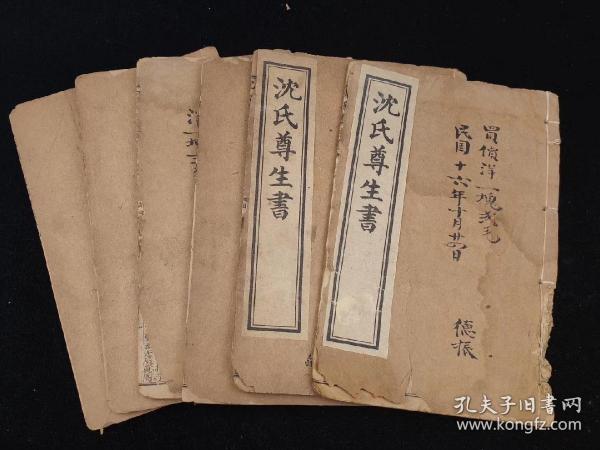 沈氏尊生書
沈氏尊生書
買價洋一塊貳毛
民國十六年十月廿四日
德振
孔夫子旧書网
www.kongfz.com